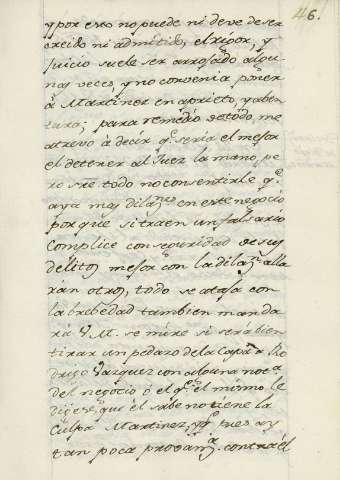 46.
y por esso no puede ni deve de ser
creido ni admitido, el rigor, y
Juicio suele ser arrojado algu-
nas veces y no convenia poner
a Martinez en aprieto, y aben
tura; para remedio de todo, me
atrevo a decir q.e seria el mejor
el detener al Juez la mano, pe
ro sre todo no consentirle q.e
aya mas dilaz.nes en este negocio
porque si traen un falsario
Complice con seguridad de sus
delitos mejor con la dilaz.n alla
ran otros, todo se ataja con
la brebedad tambien manda
rá V.M. se mire si será bien
tirar un pedazo de la capa a Ro
drigo Vazquez con alguna not.a
del negocio ó el q.e el mismo le
digere, que el sabe no tiene la
Culpa Martinez, y q.e pues ay
tan poca provanz.a contra él